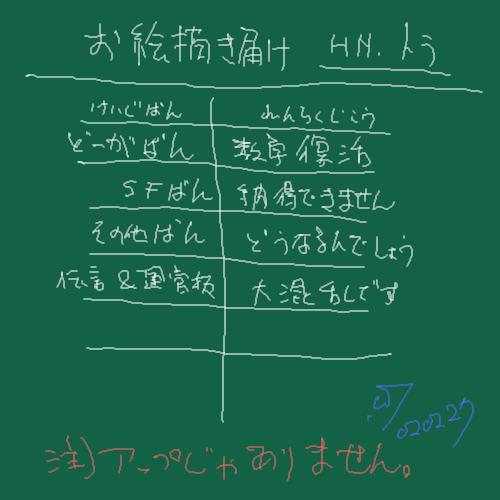 お絵描き届け HN.トラ
けいじばん れんらくじこう
どーがばん 数字復活
SFばん 納得できません
その他ばん どうなるんでしょう
伝言&運営板 大混乱です
020227
注)アップじゃありません。